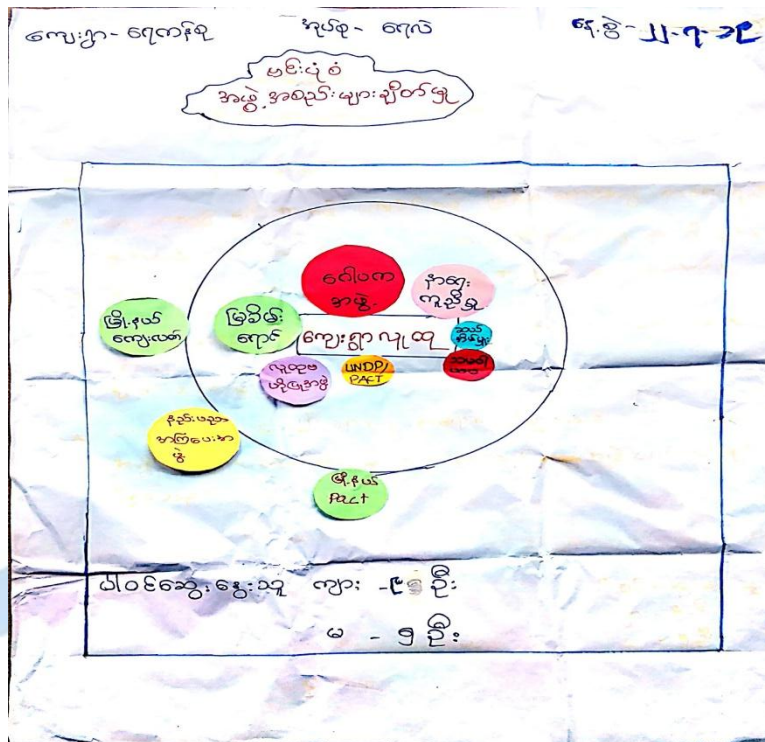 ကျေးရွာ - ရေကန်စု အုပ်စု - ရေလဲ နေ့စွဲ - ၂၂-၇-၁၉
ဗင်းပုံစံ
အဖွဲ့အစည်းများချိတ်မှု
ဂေါပက
အဖွဲ့
နာရေး
ကူညီမှု
မြို့နယ်
ကျေးလက်
မြခိမ်း
ရောင်
ကျေးရွာလူထု
ဆယ်အိမ်မှူး
UNDP/
PACT
နည်းပညာ
အကြံပေးအ
ဖွဲ့
မြို့နယ်
Pact
ပါဝင်ဆွေးနွေးသူ ကျား - ၉ ဦး
မ - ၅ ဦး